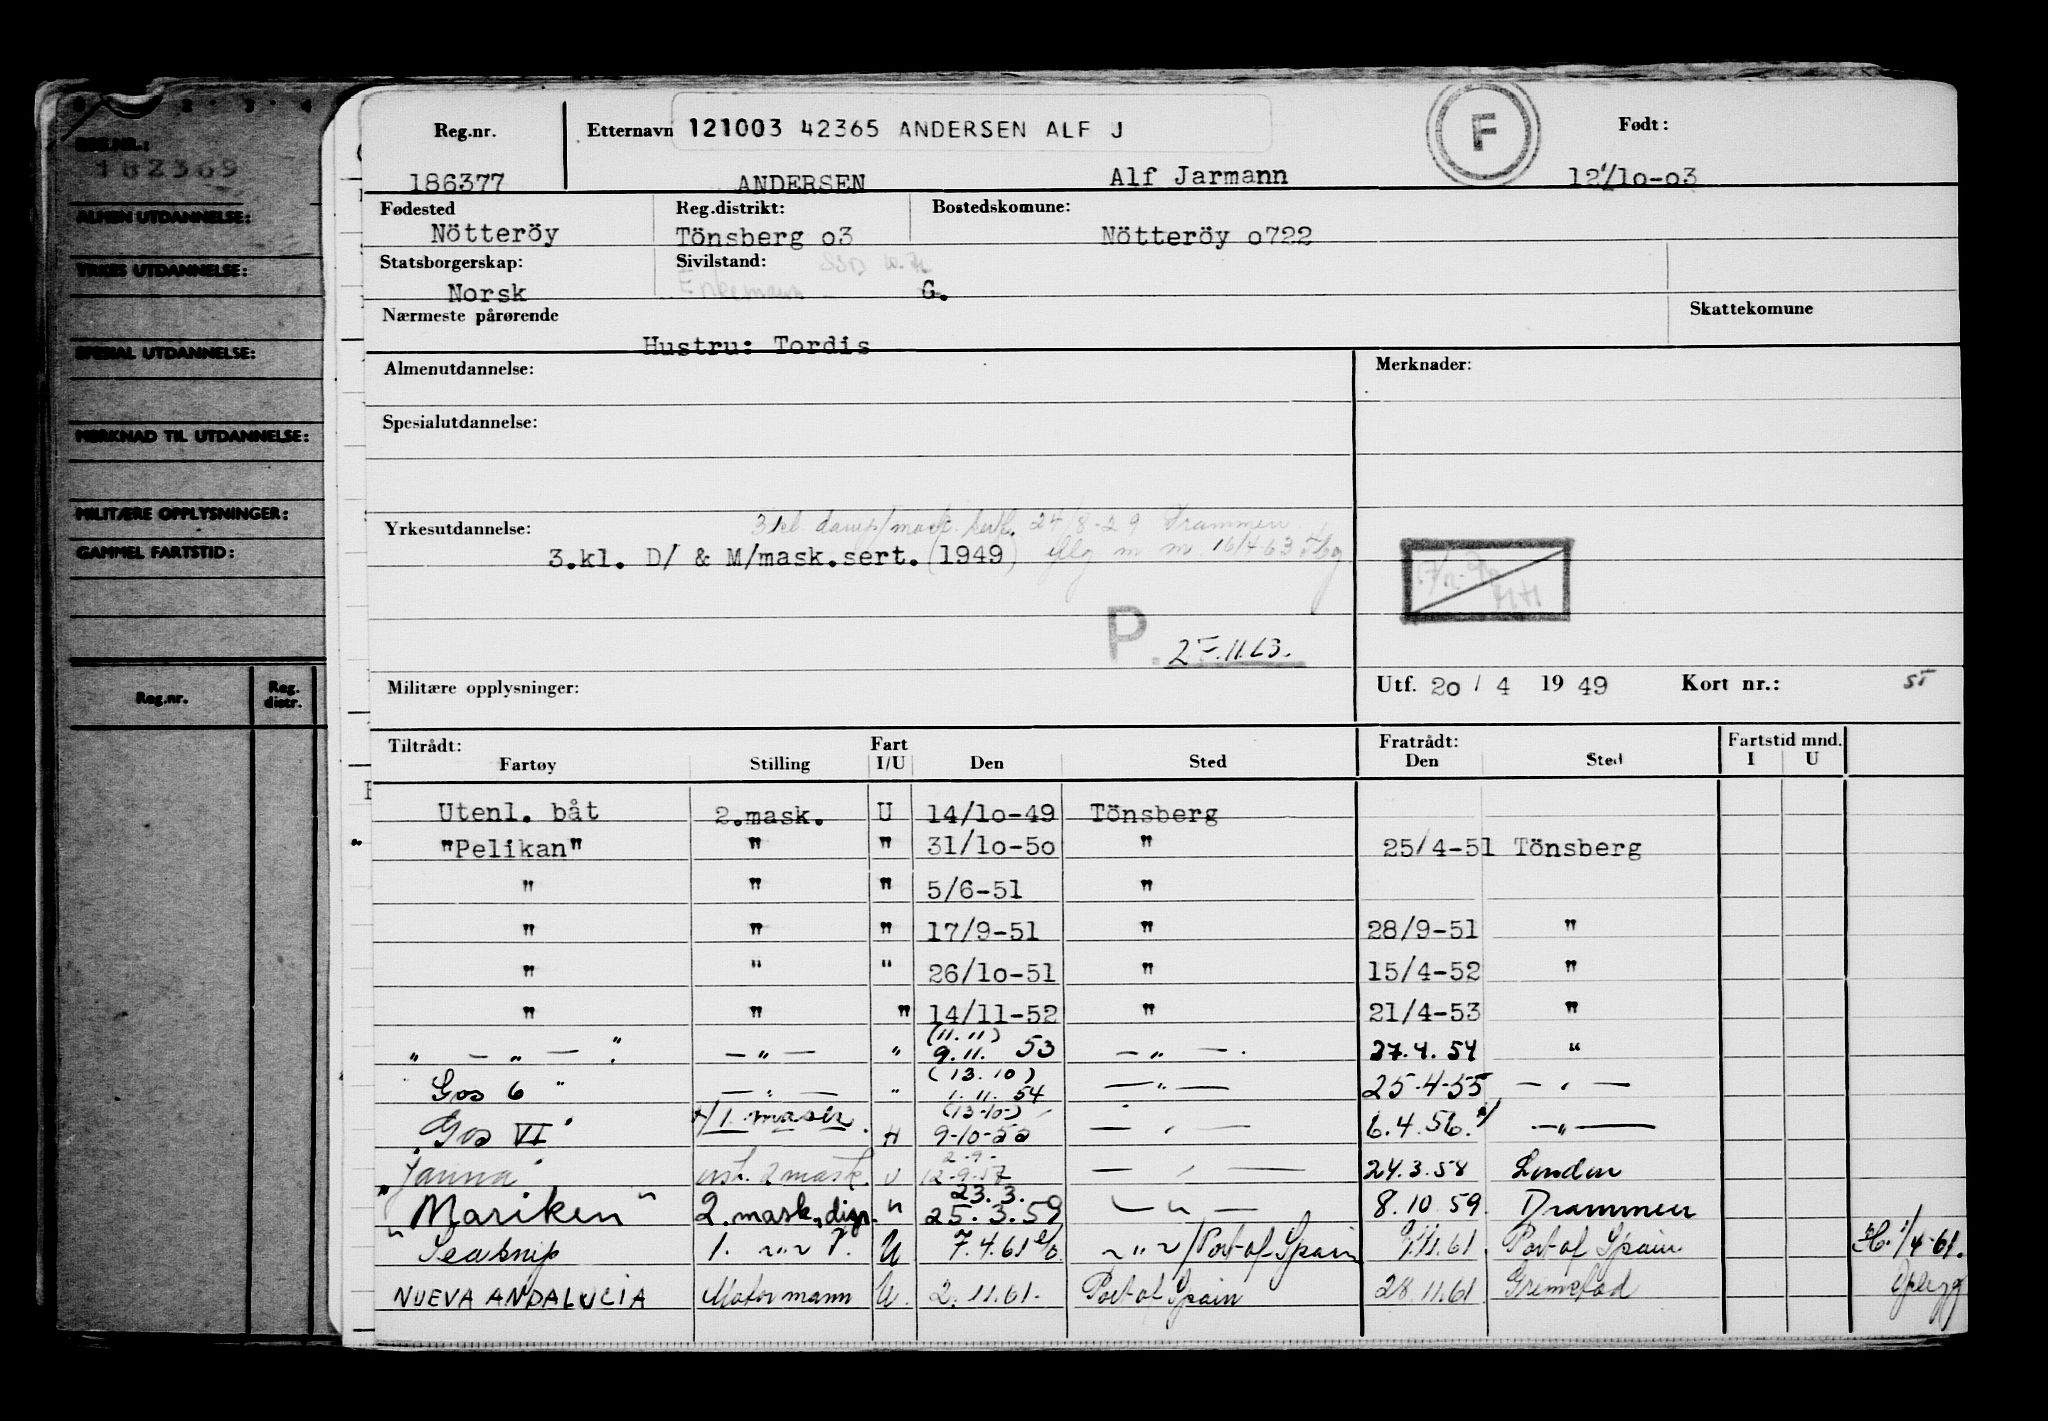 REG.NR.:
182369
ALMEN UTDANNELSE:
YRKES UTDANNELSE:
SPESIAL UTDANNELSE:
MERKNAD TIL UTDANNELSE:
MILITÆRE OPPLYSNINGER:
GAMMEL FARTSTID:
Reg.nr. Reg. distr.
Reg.nr. Etternavn 121003 42365 ANDERSEN ALF J F Født:
186377 ANDERSEN Alf Jarmann 12/10-03
Fødested Reg.distrikt: Bostedskomune:
Nötteröy Tönsberg 03 Nötteröy 0722
Statsborgerskap: Sivilstand:
Norsk Enkemann G.
Nærmeste pårørende Skattekomune
Hustru: Tordis
Almenutdannelse: Merknader:
Spesialutdannelse:
3 kl. damp/mask. sert. 24/8-29 Drammen
Yrkesutdannelse:
3.kl. D/ & M/mask.sert. (1949) m m 16/4-63
P. 27.11.63.
Militære opplysninger: Utf. 20 / 4 19 49 Kort nr.: 5
Tiltrådt: Fart Fratrådt: Fartstid mnd.
Fartøy Stilling I/U Den Sted Den Sted I U
Utenl. båt 2.mask. U 14/10-49 Tönsberg
"Pelikan" " " 31/10-50 " 25/4-51 Tönsberg
" " " 5/6-51 "
" " " 17/9-51 " 28/9-51 "
" " " 26/10-51 " 15/4-52 "
" " " 14/11-52 " 21/4-53 "
(11.11)
" — " — " — " — " 9.11. 53 — " — . 27.4.54 "
(13.10)
Gos 6 " — " — " 1.11.54 — " — 25.4-55 — " —
(13-10-)
"Gos VI" 1. mask. 9-10-55 — " — 6.4.56. — " —
2-9-
"Janna" 2 mask. U 12-9-57 — " — 24.3.58 London
23.3.
"Mariken" 2. mask. disp. " 25.3.59 — " — 8.10.59. Drammen
1. " U 7.4.61 — " — / Port of Spain 61. Port of Spain 1/4-61.
NUEVA ANDALUCIA Motormann U. 2.11.61. Port of Spain 28.11.61 Grimstad